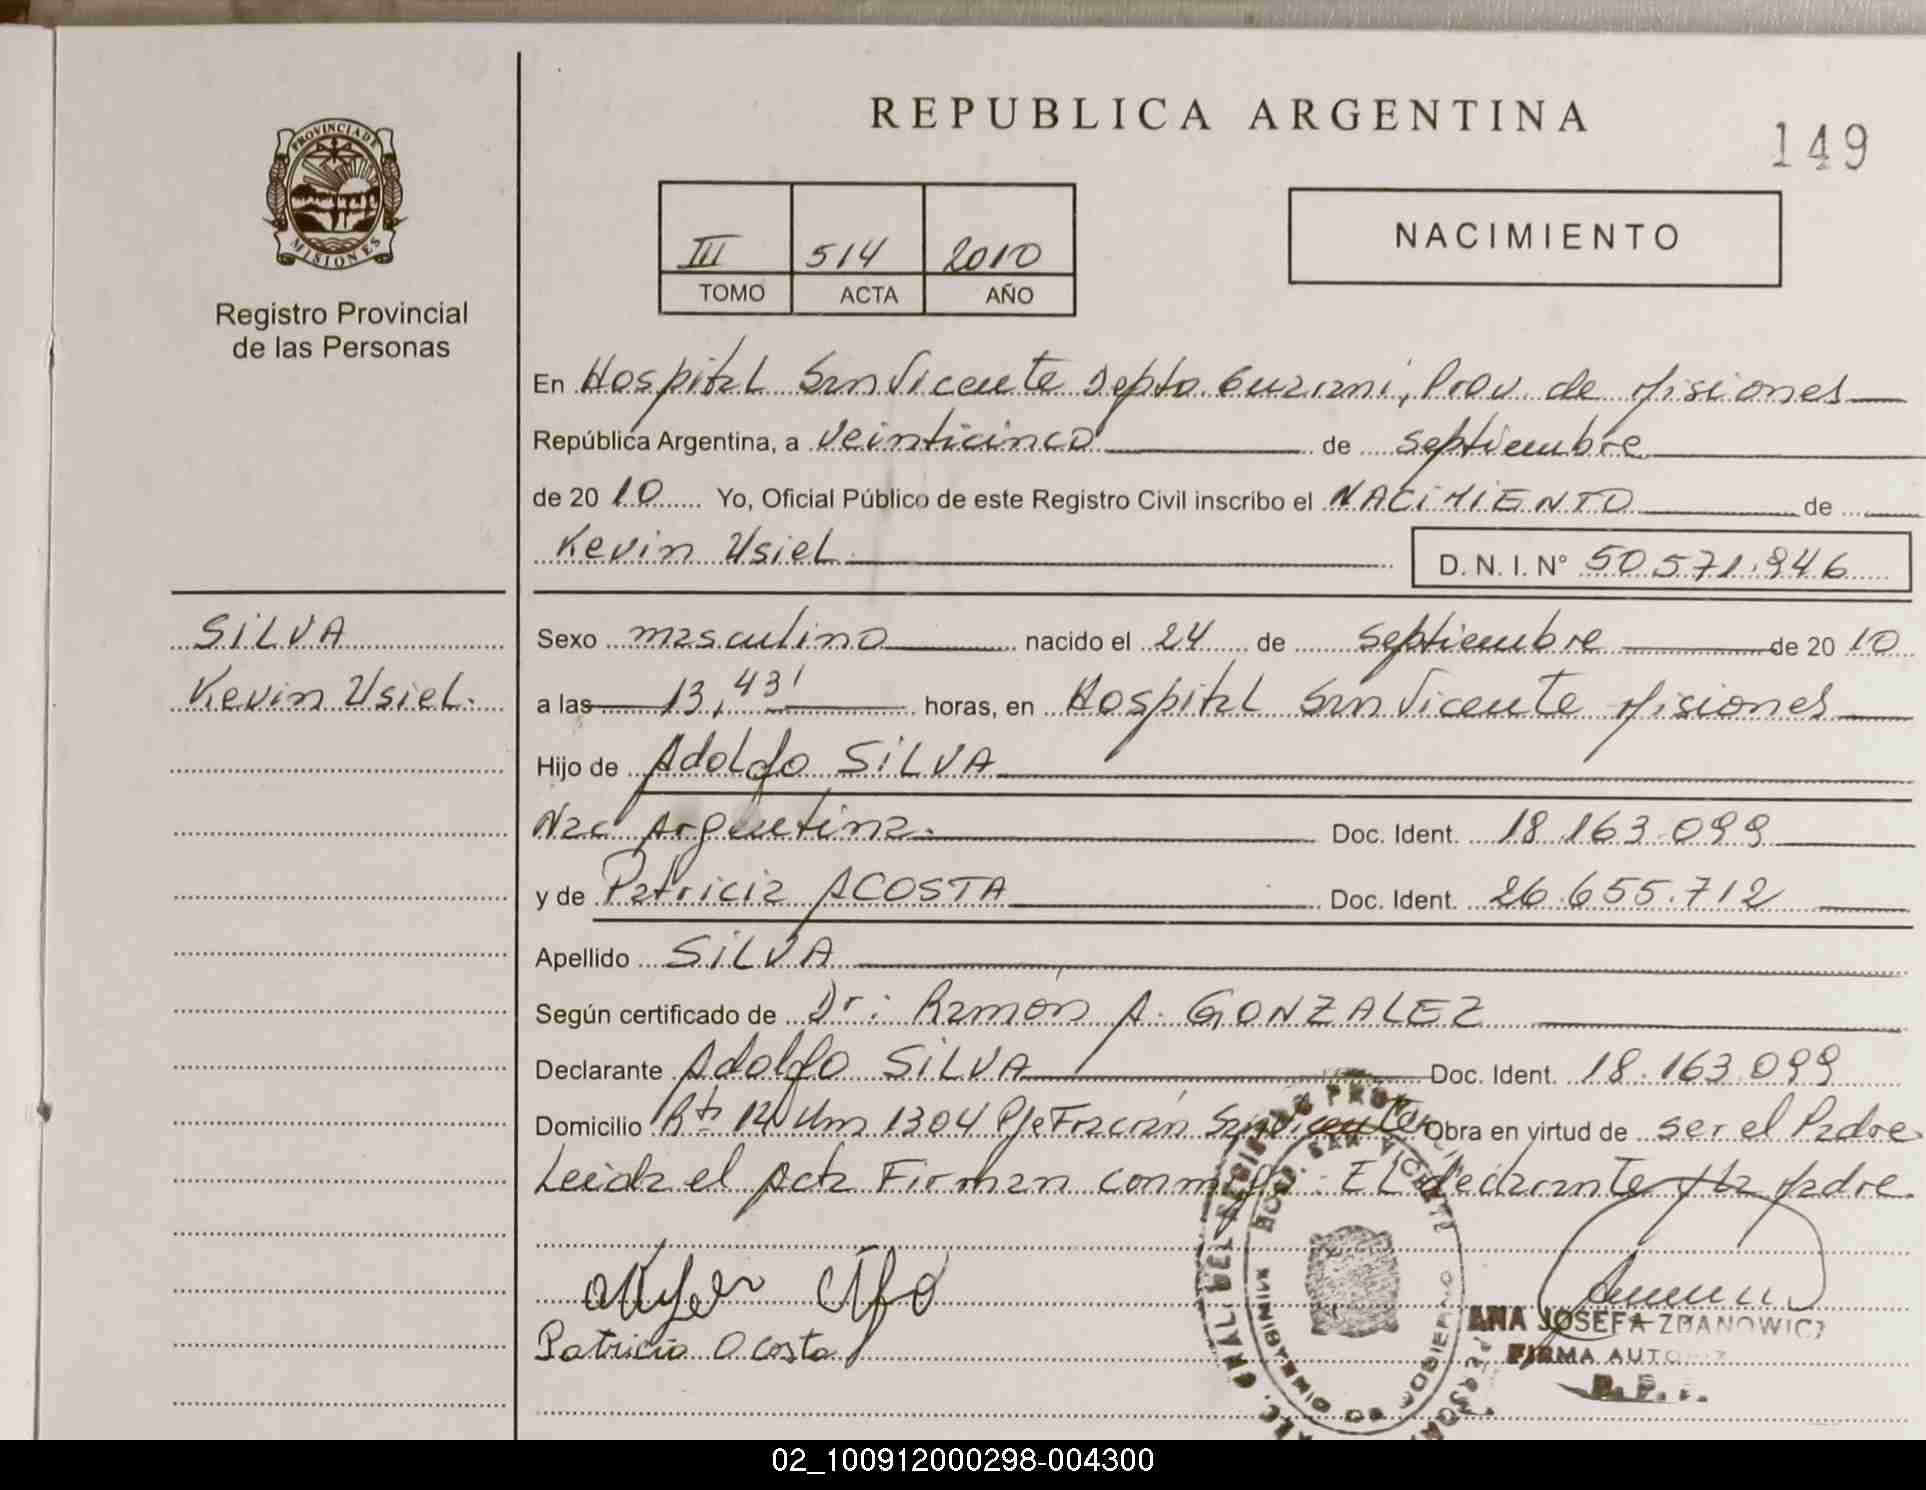 REPUBLICA ARGENTINA
149
PROVINCIA DE
MISIONES
Registro Provincial
de las Personas
III 514 2010
TOMO ACTA AÑO
NACIMIENTO
En Hospital San Vicente Depto. Guarani, Prov. de Misiones
República Argentina, a veinticinco de septiembre
de 2010 Yo, Oficial Público de este Registro Civil inscribo el NACIMIENTO de
Kevin Usiel D.N.I. Nº 50.571.846
SILVA
Kevin Usiel.
Sexo masculino nacido el 24 de septiembre de 2010
a las 13,43' horas, en Hospital San Vicente Misiones
Hijo de Adolfo SILVA
Nac Argentina. Doc. Ident. 18.163.099
y de Patricia ACOSTA Doc. Ident. 26.655.712
Apellido SILVA
Según certificado de Dr: Ramón A. GONZALEZ
Declarante Adolfo SILVA Doc. Ident. 18.163.099
Domicilio Rta 14 Km 1304 Pje Fracrán San Vicente Obra en virtud de ser el Padre
Leida el Acta Firman conmigo: El declarante y la padre.
Patricia Acosta
ANA JOSEFA ZDANOWICZ
FIRMA AUTORIZ
02_100912000298-004300